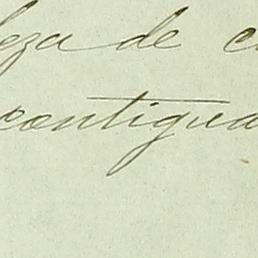 eza de c
contigua